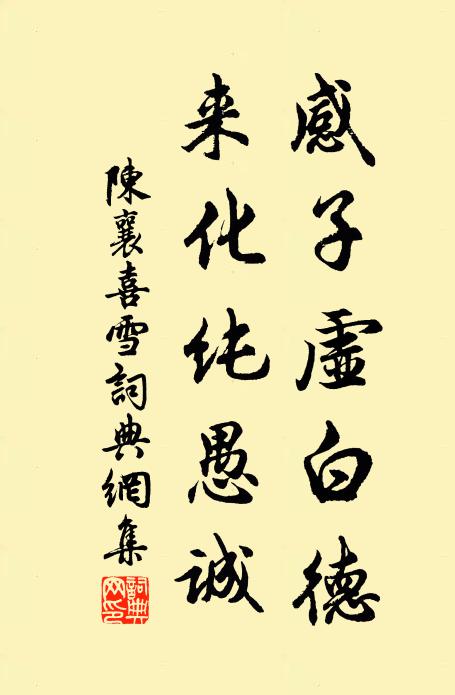 感子虛白德
来化纯愚誠
陳襄喜雪詞典網集
詞典网印